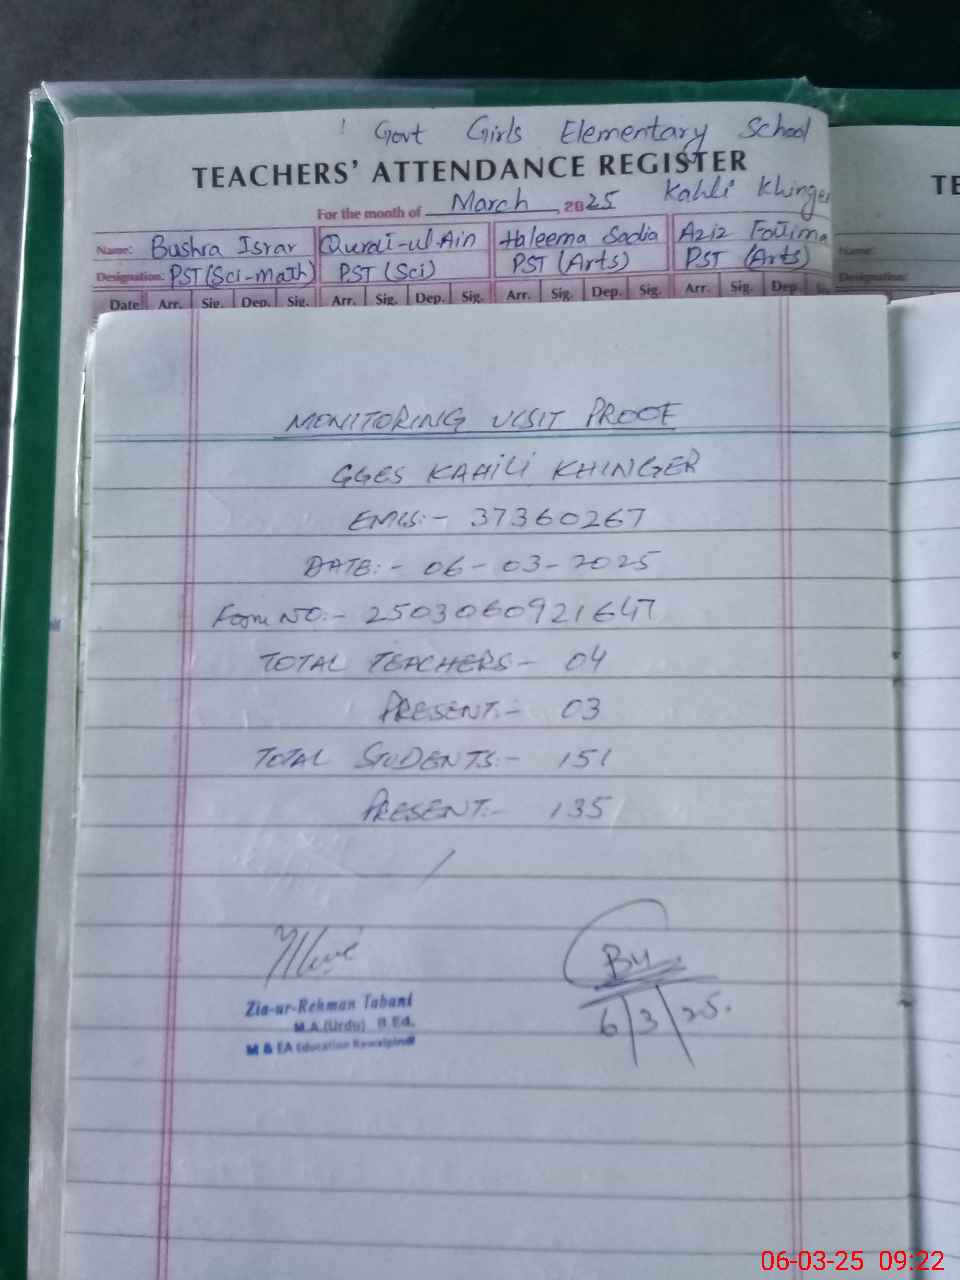 Govt Girls Elementary School
TEACHERS' ATTENDANCE REGISTER
Kahli Khinger
For the month of March, 2025
Name: Bushra Israr Qurat-ul-Ain Haleema Sadia Aziz Fatima
Designation: PST (Sci-math) PST (Sci) PST (Arts) PST (Arts)
Date Arr. Sig. Dep. Sig. Arr. Sig. Dep. Sig. Arr. Sig. Dep. Sig. Arr. Sig. Dep.
Name:
Designation:
MONITORING VISIT PROOF
GGES KAHILI KHINGER
EMIS:- 37360267
DATE:- 06-03-2025
Form NO:- 2503060921647
TOTAL TEACHERS- 04
PRESENT:- 03
TOTAL STUDENTS:- 151
PRESENT:- 135
Zia-ur-Rehman Tabani
M.A.(Urdu) B Ed.
M & EA Education Rawalpindi
6/3/25.
06-03-25 09:22